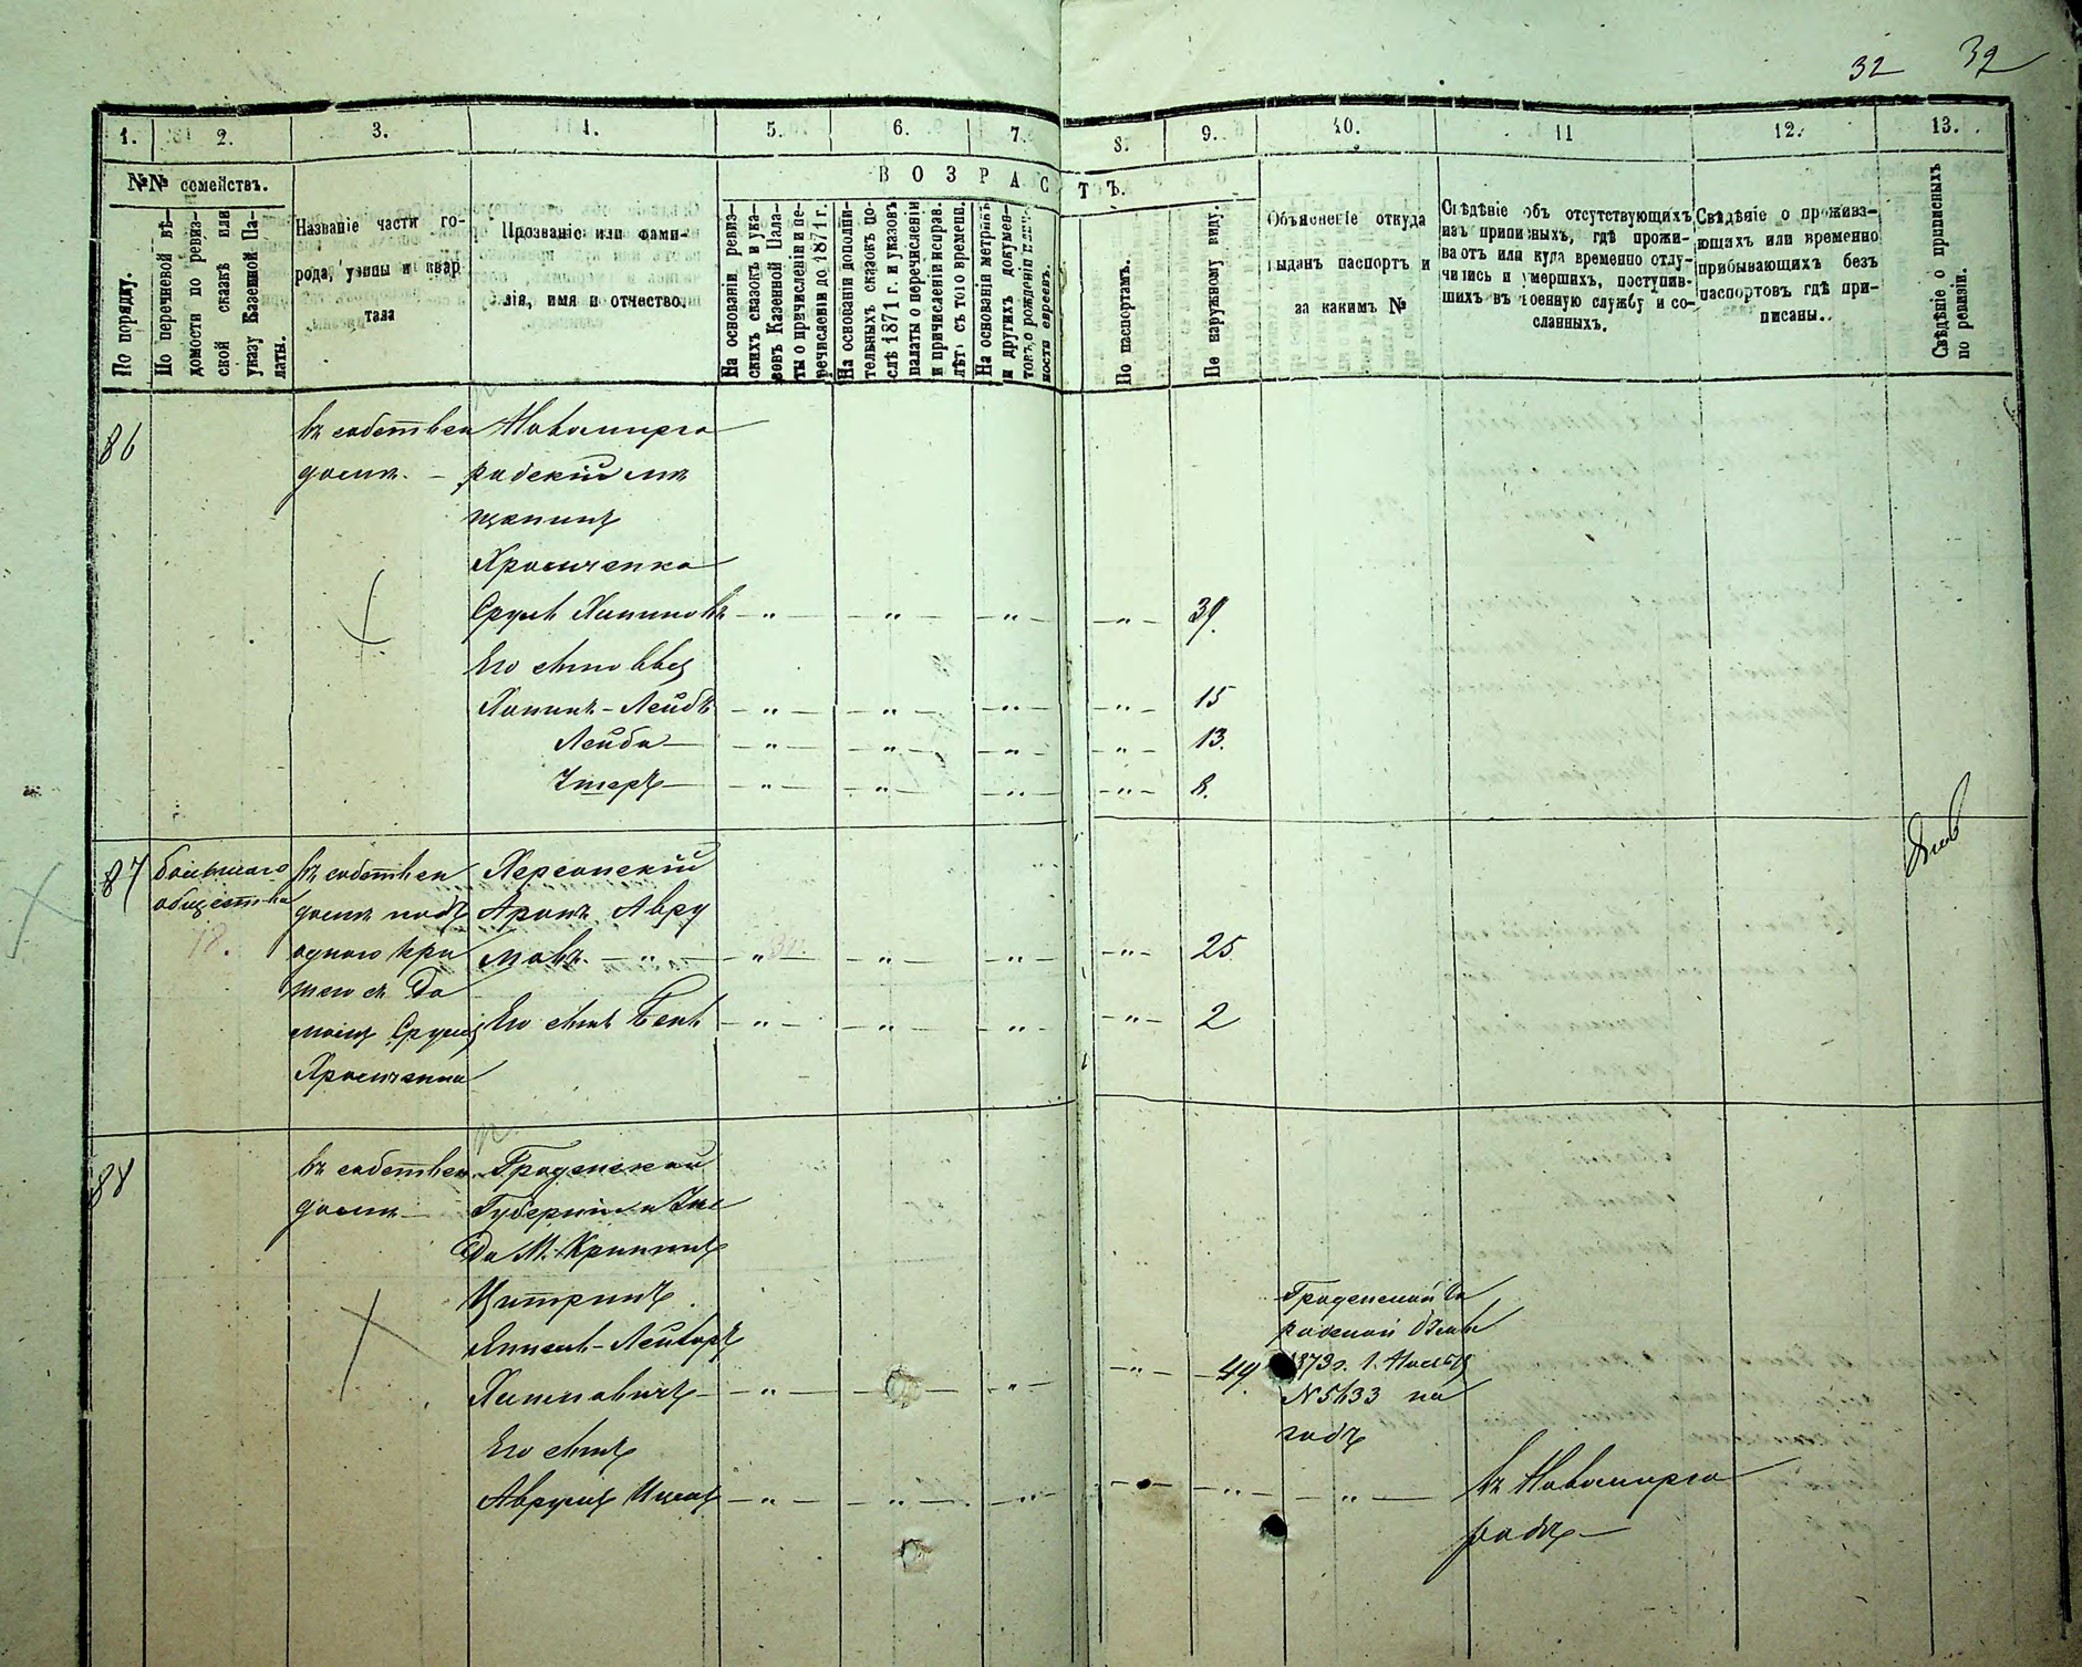 32 32
1. 2. 3. 4. 5. 6. 7. 8. 9. 10. 11 12. 13.
№№ семействъ.
ВОЗРАСТЪ.
По порядку.
По перечневой вѣ-
домости по ревиз-
ской сказкѣ или
указу Казенной Па-
латы.
Названіе части го-
рода, улицы и квар
тала
Прозваніе или фами-
лія, имя и отчество.
На основаніи ревиз-
скихъ сказокъ и ука-
зовъ Казенной Пала-
ты о причисленіи и пе-
речисленіи до 1871 г.
На основаніи дополни-
тельныхъ сказокъ по-
слѣ 1871 г. и указовъ
палаты о перечисленіи
и причисленіи исправ.
лѣтъ съ того времени.
На основаніи метрикъ
и другихъ докумен-
товъ о рожденіи
ности евреевъ.
По паспортамъ.
По наружному виду.
Объясненіе откуда
выданъ паспортъ и
за какимъ №
Свѣдѣніе объ отсутствующихъ
изъ приписныхъ, гдѣ прожи-
ваютъ или куда временно отлу-
чились и умершихъ, поступив-
шихъ въ военную службу и со-
сланныхъ.
Свѣдѣніе о прожива-
ющихъ или временно
прибывающихъ безъ
паспортовъ гдѣ при-
писаны.
Свѣдѣніе о приписныхъ
по ревизіи.
86 въ собствен Новомирго
домѣ. — родскій мѣ
щанинъ
Хромченко
Сруль Хаимовъ — " — — " — — " — — " — 39.
Его сыновья
Хаимъ-Лейбъ — " — — " — — " — — " — 15
Лейба — — " — — " — — " — — " — 13.
— " — — " — — " — — " — 8.
87 большаго въ собствен Херсонскій
общества домѣ подъ Аронъ Авру
78. одною кры мовъ. — " — — " — — " — — " — — " — 25
шею съ До
момъ Сруля Его сынъ Бень — " — — " — — " — — " — 2
Хромченка
88 въ собствен. Гродненской
домѣ — Губерніи
Да М. Крынки
Цитринъ
Янкель-Лейзоръ
Хаимовичъ — " — — — " — — " — 49.
Гродненской Го
родской Думы
1873 г. 1. Ноября
N 5633 на
годъ
Его сынъ
Аврумъ Ицекъ — " — — " — — " — — " — — " — — " — въ Новомирго
родѣ —